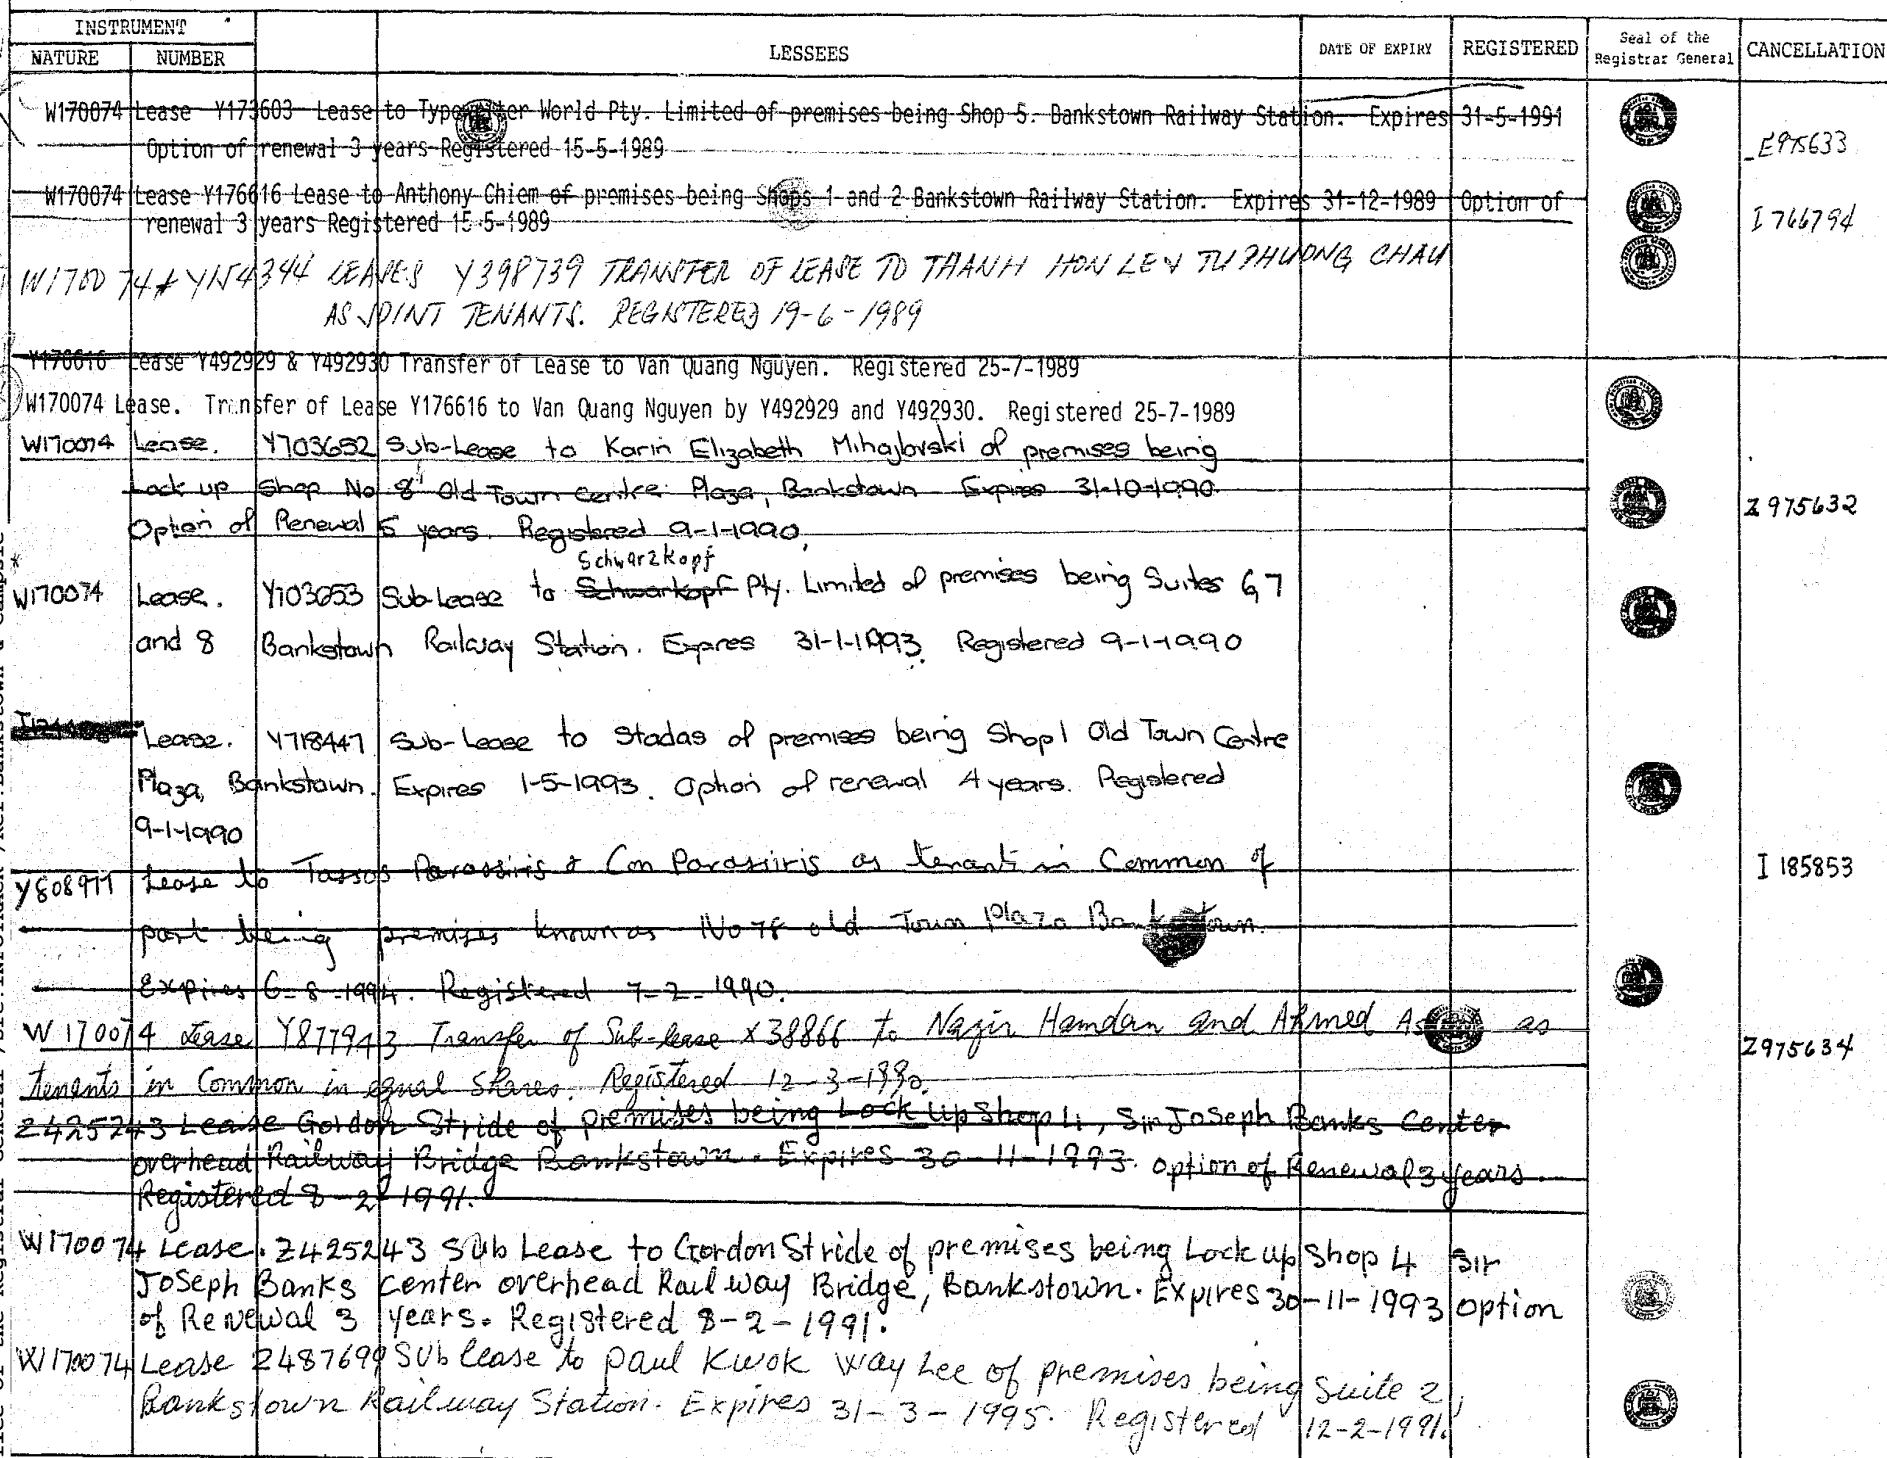 INSTRUMENT
NATURE NUMBER LESSEES DATE OF EXPIRY REGISTERED Seal of the Registrar General CANCELLATION
W170074 Lease Y173603 Lease to Typewriter World Pty. Limited of premises being Shop 5. Bankstown Railway Station. Expires 31-5-1991
Option of renewal 3 years Registered 15-5-1989 E975633
W170074 Lease Y176616 Lease to Anthony Chiem of premises being Shops 1 and 2 Bankstown Railway Station. Expires 31-12-1989 Option of
renewal 3 years Registered 15-5-1989 I766794
W170074 & Y154344 LEASES Y398739 TRANSFER OF LEASE TO THANH HON LE & TU PHUONG CHAU
AS JOINT TENANTS. REGISTERED 19-6-1989
Y176616 Lease Y492929 & Y492930 Transfer of Lease to Van Quang Nguyen. Registered 25-7-1989
W170074 Lease. Transfer of Lease Y176616 to Van Quang Nguyen by Y492929 and Y492930. Registered 25-7-1989
W170074 Lease. Y703652 Sub-Lease to Karin Elizabeth Mihajlovski of premises being
Lock up Shop No 8 Old Town Centre Plaza, Bankstown Expires 31-10-1990. Z975632
Option of Renewal 5 years. Registered 9-1-1990.
Schwarzkopf
W170074 Lease. Y703653 Sub-Lease to Schwarkopf Pty. Limited of premises being Suites 6,7
and 8 Bankstown Railway Station. Expires 31-1-1993. Registered 9-1-1990
Lease. Y718447 Sub-Lease to Stadas of premises being Shop 1 Old Town Centre
Plaza, Bankstown. Expires 1-5-1993. Option of renewal 4 years. Registered
9-1-1990
Y808977 Lease to Tassos Parassiris & Con Parassiris as tenants in Common of I185853
part being premises known as No 78 old Town Plaza Bankstown.
Expires 6-8-1994. Registered 7-2-1990.
W170074 Lease Y877943 Transfer of Sub-lease X38866 to Nazir Hamdan and Ahmed as
tenants in Common in equal Shares. Registered 12-3-1990. Z975634
Z425243 Lease Gordon Stride of premises being Lock Up Shop 4, Sir Joseph Banks Center
overhead Railway Bridge Bankstown. Expires 30-11-1993. option of Renewal 3 years.
Registered 8-2-1991.
W170074 Lease. Z425243 Sub Lease to Gordon Stride of premises being Lock up Shop 4 Sir
Joseph Banks Center overhead Railway Bridge, Bankstown. Expires 30-11-1993 option
of Renewal 3 years. Registered 8-2-1991.
W170074 Lease Z487699 Sub lease to Paul Kwok Way Lee of premises being Suite 2,
Bankstown Railway Station. Expires 31-3-1995. Registered 12-2-1991.